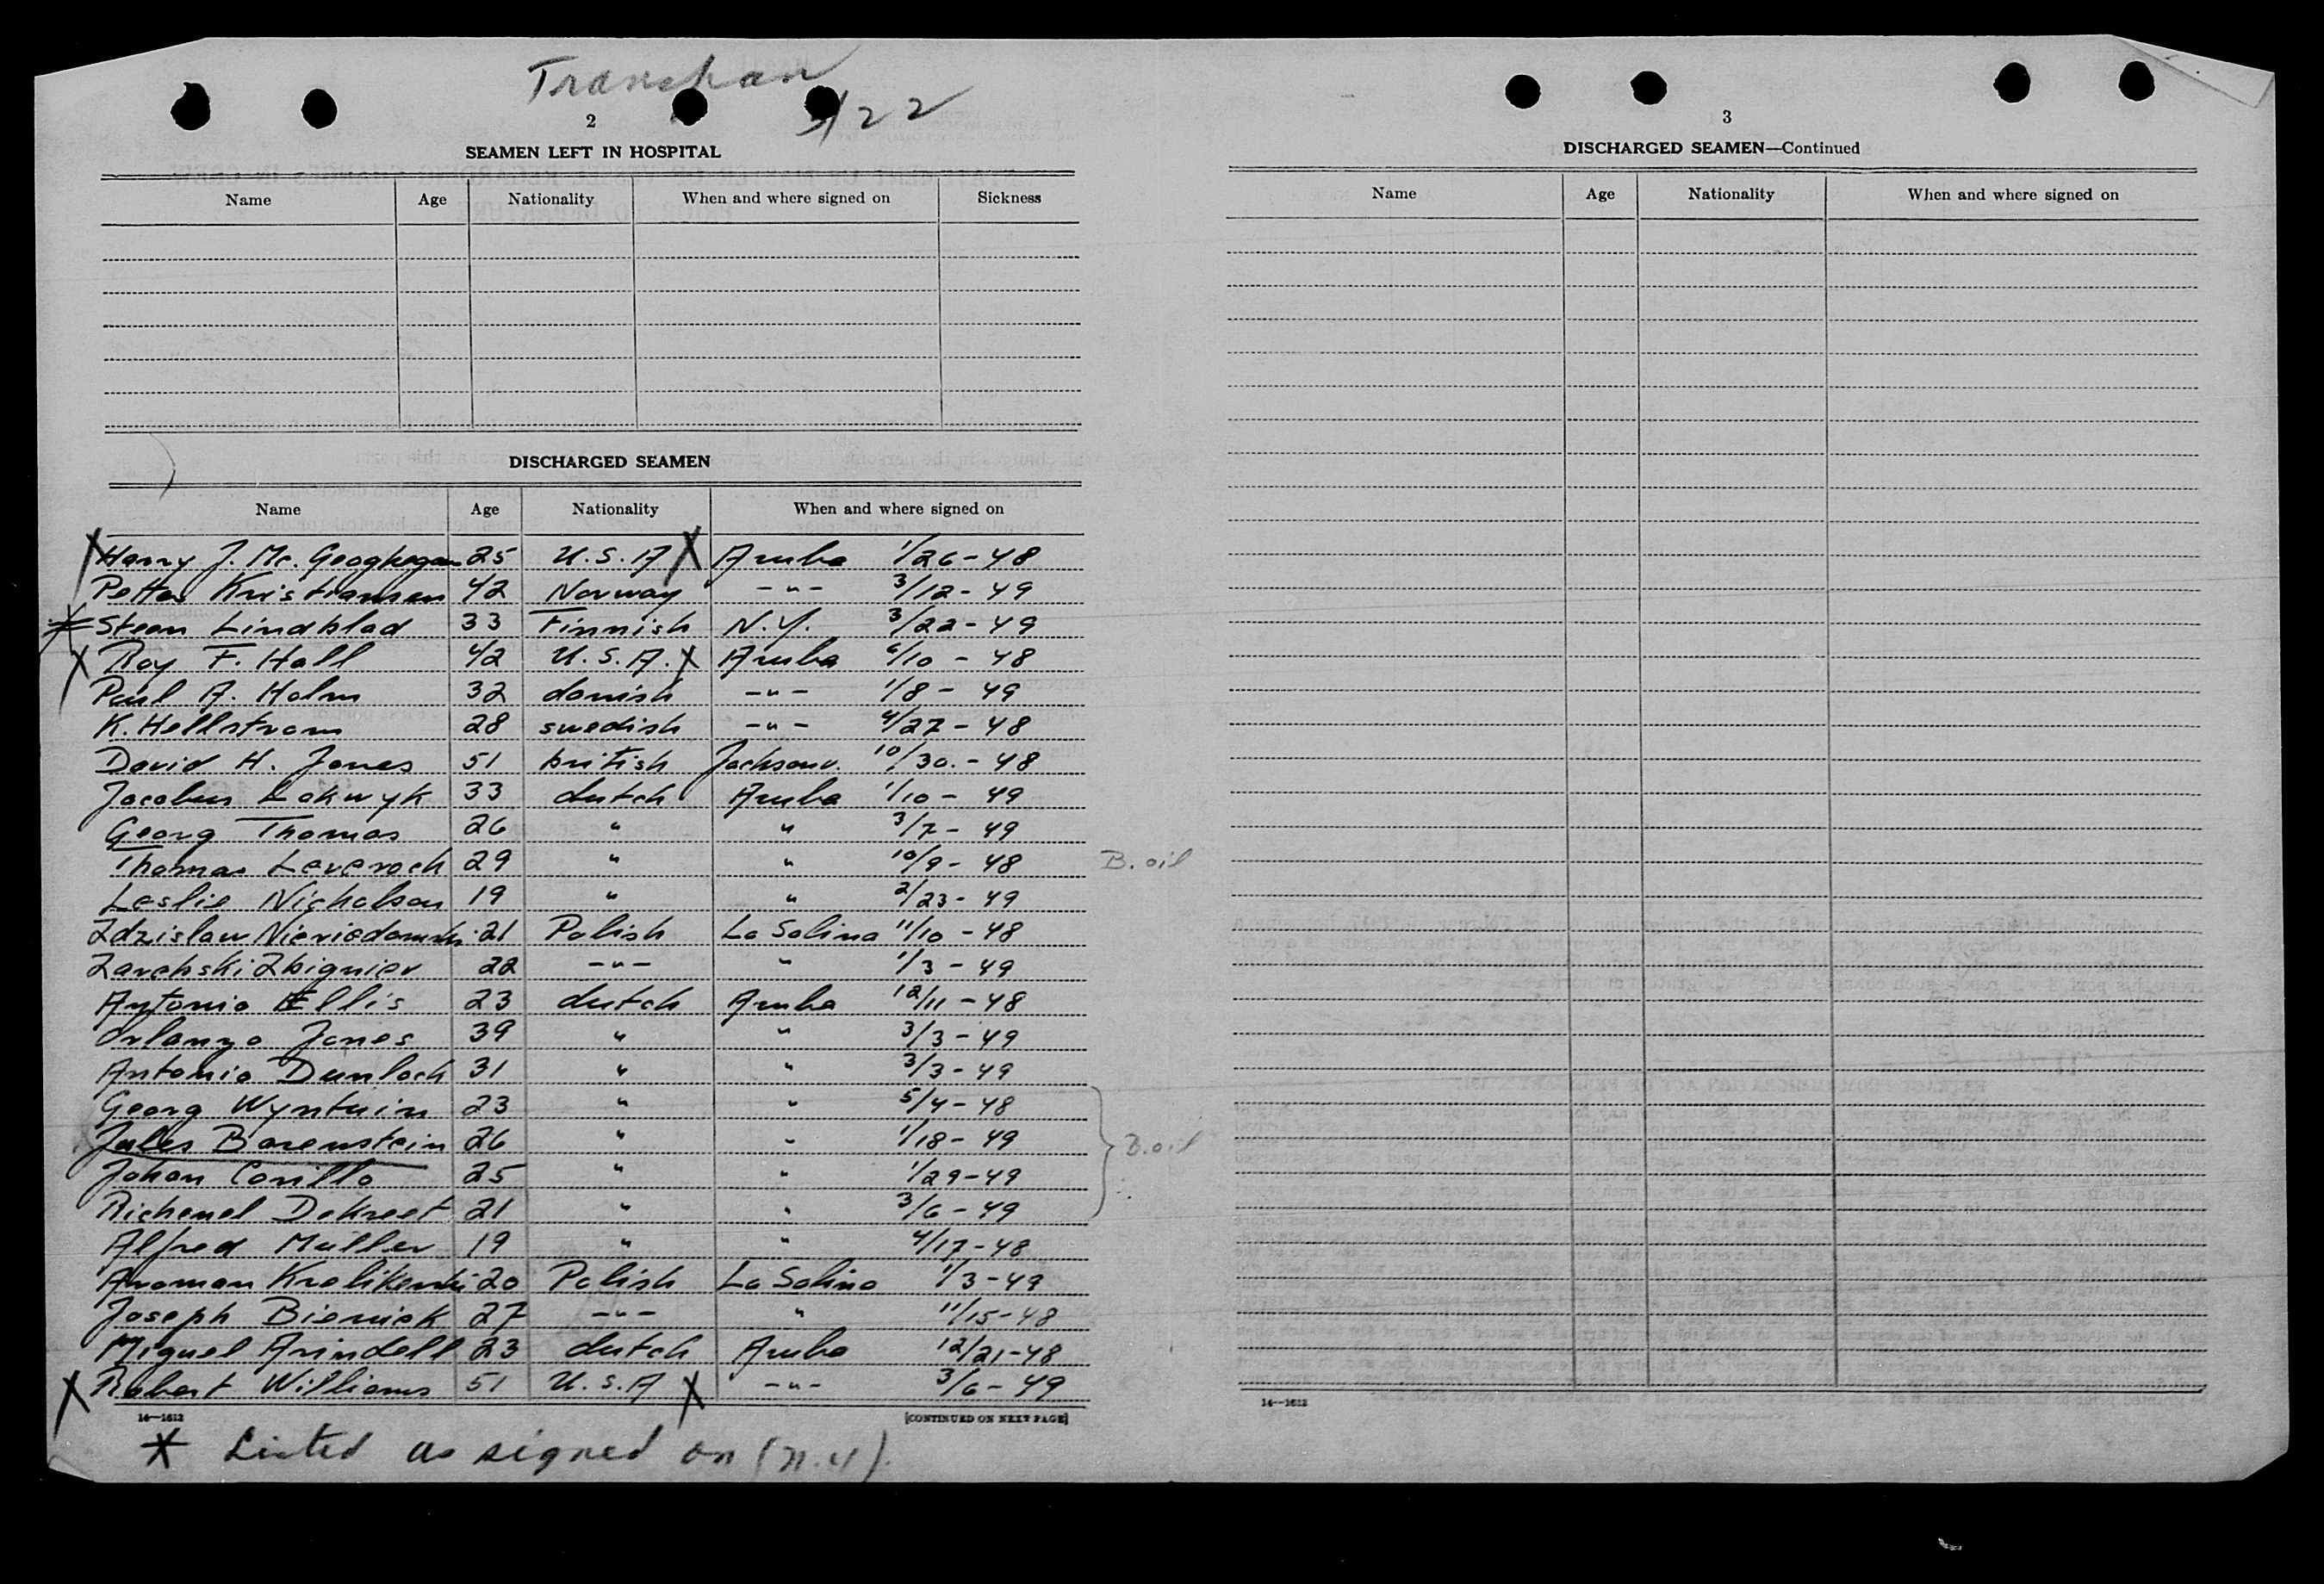 3/22
2
SEAMEN LEFT IN HOSPITAL
Name Age Nationality When and where signed on Sickness
DISCHARGED SEAMEN
Name Age Nationality When and where signed on
X Harry J. Mc. Geoghegan 25 U.S.A X Aruba 1/26-48
Petter Kristiansen 42 Norway -"- 3/12-49
* Steen Lindblad 33 Finnish N.Y. 3/22-49
X Roy F. Hall 42 U.S.A. X Aruba 6/10-48
Paul A. Holm 32 danish -"- 1/8-49
K. Hellstrom 28 swedish -"- 4/27-48
David H. Jones 51 british Jacksonv. 10/30.-48
Jacobus Lakwyk 33 dutch Aruba 1/10-49
Georg Thomas 26 " " 3/7-49
Thomas Leverock 29 " " 10/9-48 B. oil
Leslie Nicholson 19 " " 2/23-49
Zdzislaw 21 Polish La Salina 11/10-48
Zbigniev 22 -"- " 1/3-49
Antonio Ellis 23 dutch Aruba 12/11-48
Orlanzo Jones 39 " " 3/3-49
Antonio Dunlock 31 " " 3/3-49
Georg Wyntuin 23 " " 5/4-48
Jules Barenstein 26 " " 1/18-49 B.oil
Johan Corillo 25 " " 1/29-49
Richenel DeKreet 21 " " 3/6-49
Alfred Muller 19 " " 4/17-48
20 Polish La Salina 1/3-49
Joseph Bierniek 27 -"- " 11/15-48
Miguel Arindell 23 dutch Aruba 12/21-48
X Robert Williams 51 U.S.A X -"- 3/6-49
14—1612
[CONTINUED ON NEXT PAGE]
* Listed as signed on (N.Y.)
3
DISCHARGED SEAMEN—Continued
Name Age Nationality When and where signed on
14—1612